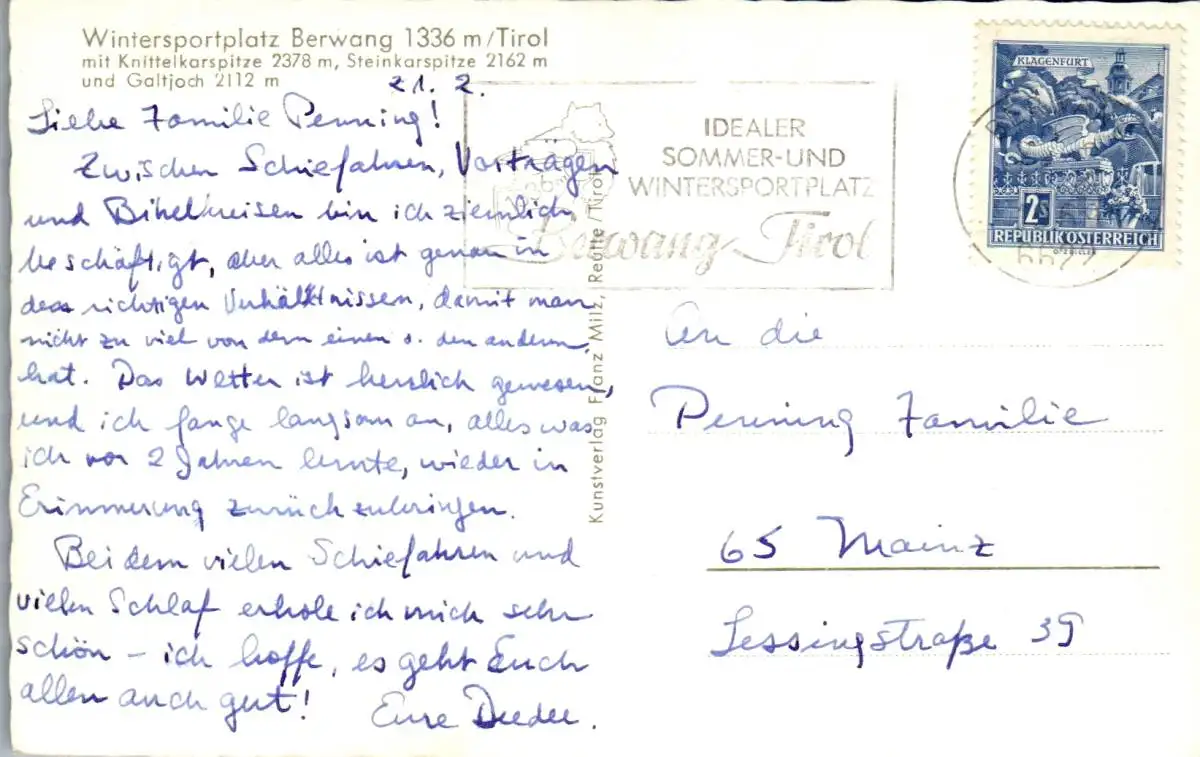 Wintersportplatz Berwang 1336 m/Tirol
mit Knittelkarspitze 2378 m, Steinkarspitze 2162 m
und Galtjoch 2112 m
21. 2.
Liebe Familie Penning!
Zwischen Schiefahren, Vorträgen
und Bibelkreisen bin ich ziemlich
beschäftigt, aber alles ist genau in
den richtigen Verhältnissen, damit man
nicht zu viel von dem einen o. den anderen
hat. Das Wetter ist herrlich gewesen,
und ich fange langsam an, alles was
ich vor 2 Jahren lernte, wieder in
Erinnerung zurückzubringen.
Bei dem vielen Schiefahren und
vielen Schlaf erhole ich mich sehr
schön – ich hoffe, es geht Euch
allen auch gut!
Eure Deedee.
Kunstverlag Franz Milz, Reutte/Tirol
IDEALER
SOMMER-UND
WINTERSPORTPLATZ
Berwang Tirol
KLAGENFURT
2s
REPUBLIK ÖSTERREICH
An die
Penning Familie
65 Mainz
Lessingstraße 39